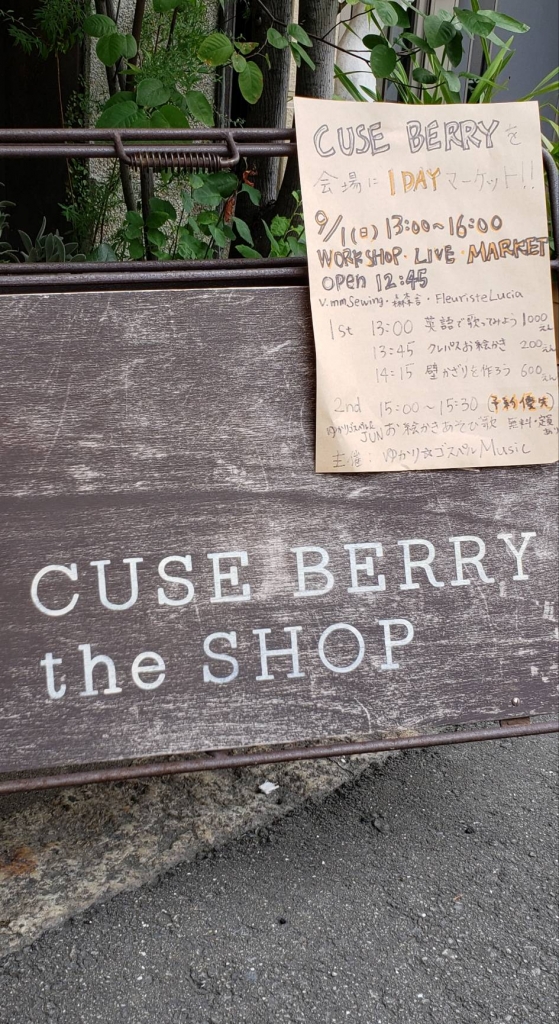 CUSE BERRY を
会場に 1DAY マーケット!!
9/1(日) 13:00~16:00
WORKSHOP・LIVE・MARKET
open 12:45
V.mmSewing・・FleuristeLucia
1st 13:00 英語で歌ってみよう 1000えん
13:45 クレパスお絵かき 200えん
14:15 壁かざりを作ろう 600えん
2nd 15:00~15:30 (予約優先)
JUN お絵かきあそび歌 無料・定員あり
主催: ゆかり☆ゴスペルMusic
CUSE BERRY
the SHOP